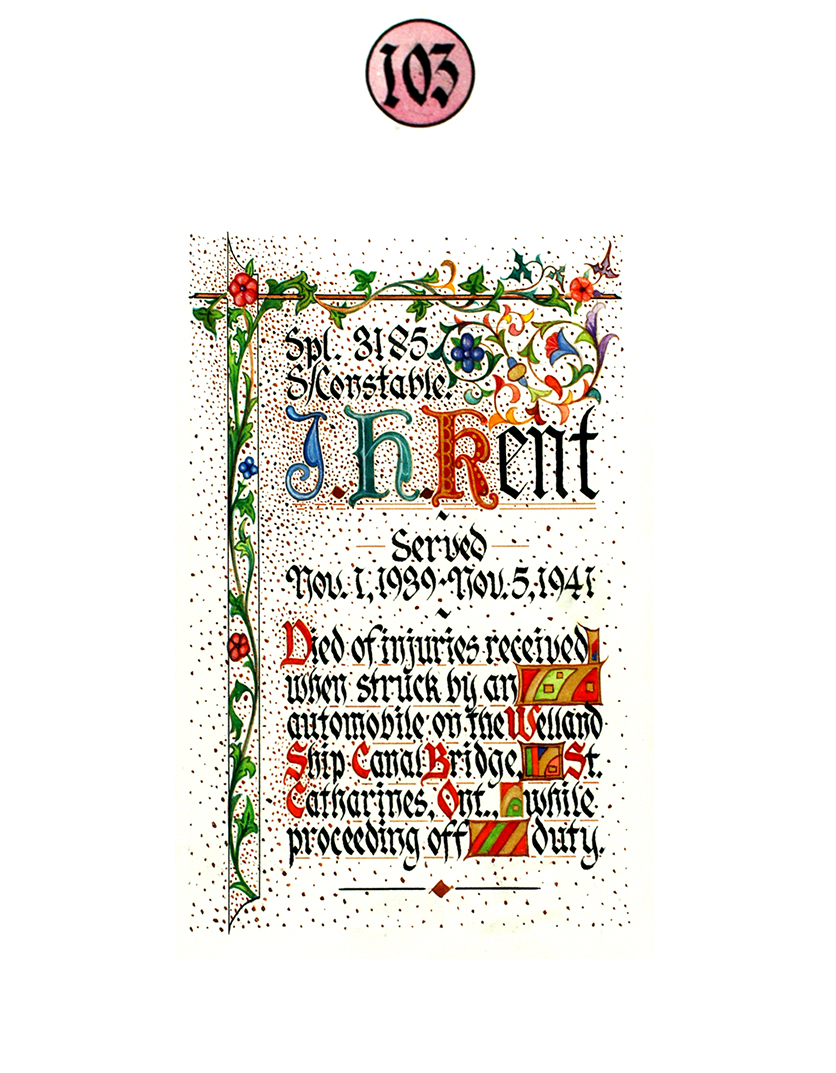 103
Spl. 3185
S/Constable.
J.H.Kent
Served
Nov. 1, 1939-Nov. 5, 1941
Died of injuries received
when struck by an
automobile on the Welland
Ship Canal Bridge, St.
Catharines, Ont., while
proceeding off duty.